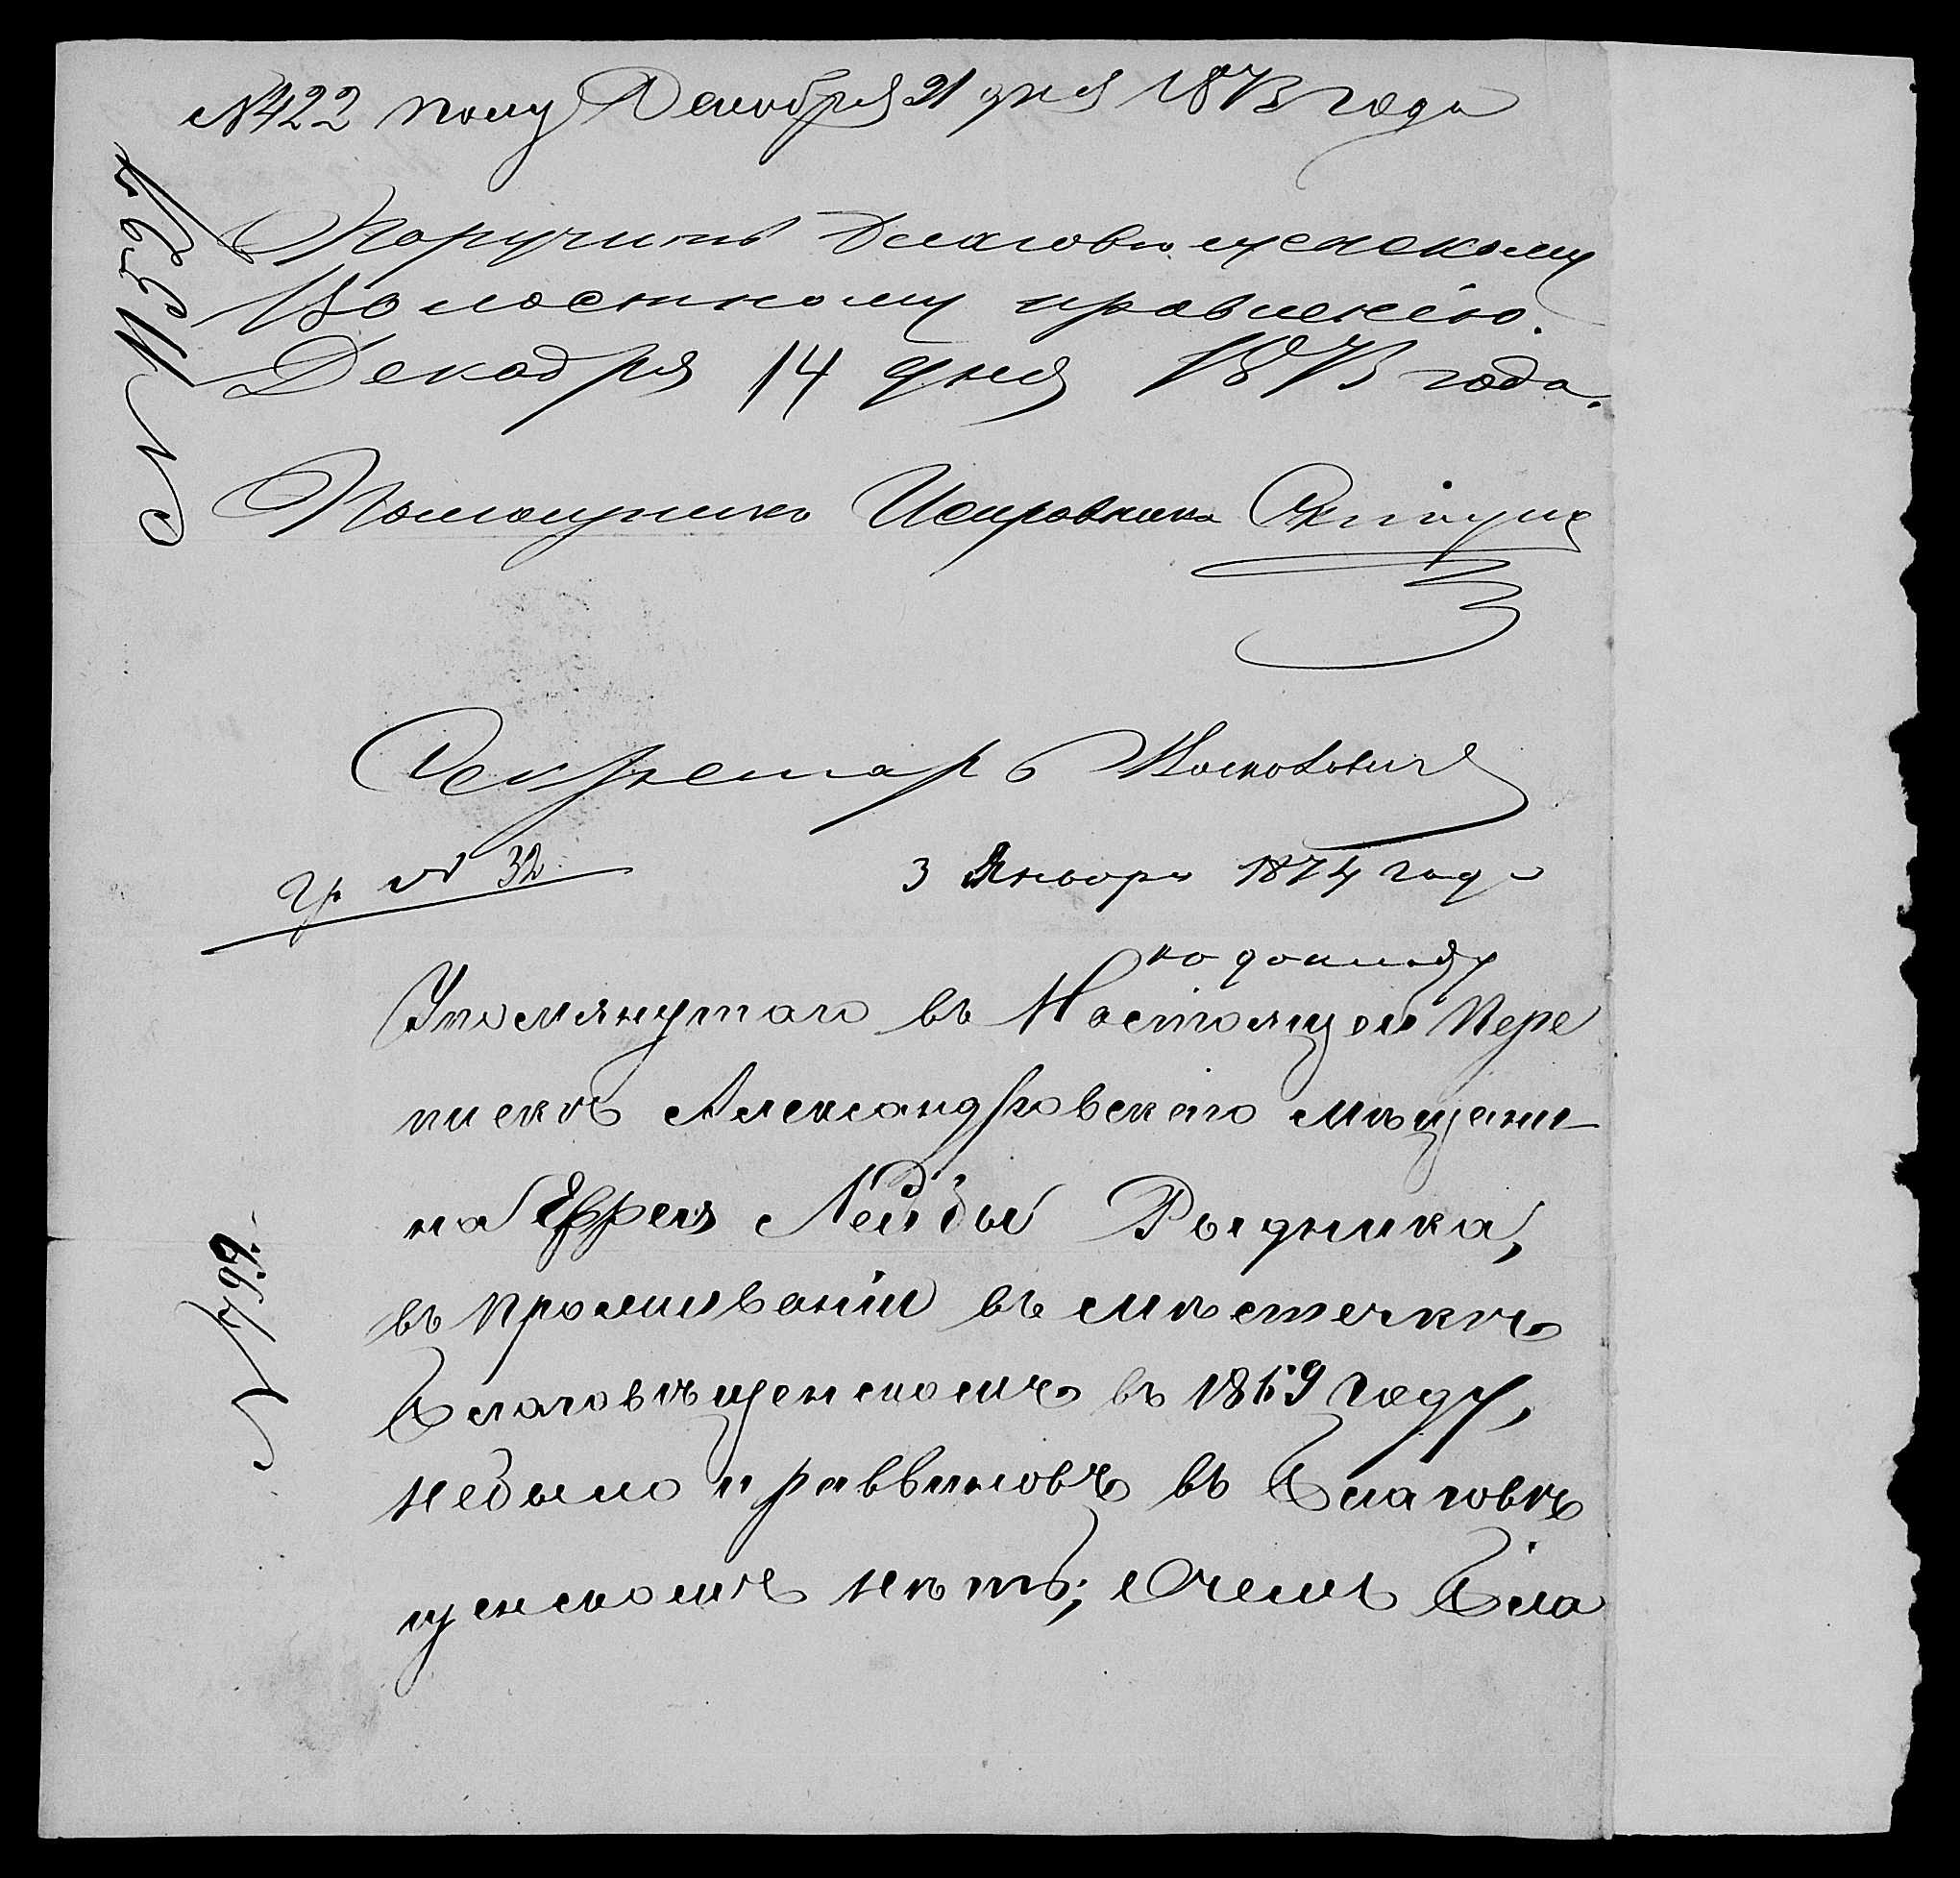 № 422 полу Декабря 21 дня 1873 года
Поручить Благовѣщенскому
Волостному правленію.
Декабря 14 дня 1873 года.
Помощникъ Исправника
Секретарь
№ 32
3 Января 1874 года
къ докладу
Упомянутаго въ Настоящей Пере
пискѣ Александровскаго мѣщани-
на Еврея Лейбы Рыдника,
въ проживаніи въ мѣстечкѣ
Благовѣщенскомъ въ 1869 году,
небыло и раввиновъ въ Благовѣ
щенскомъ нѣтъ; Очемъ Бла
№ 799.